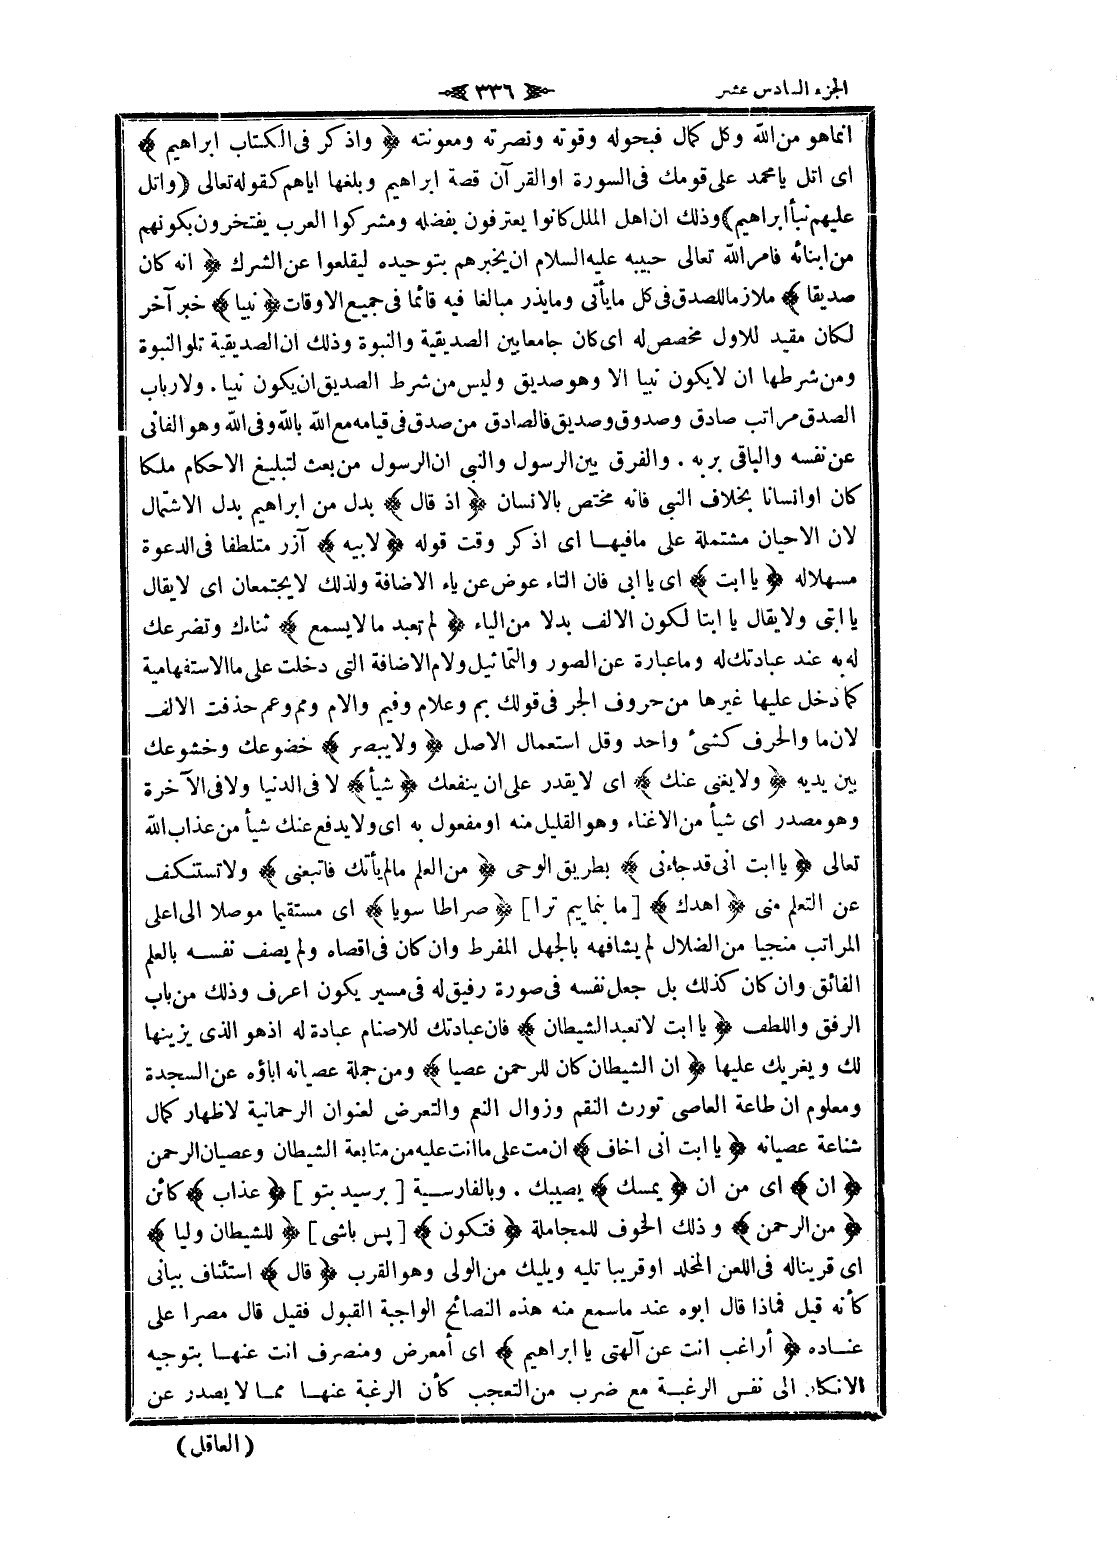 الجزء السادس عشر
٣٣٦
انماهو من الله وكل كمال فبحوله وقوته ونصرته ومعونته ﴿ واذكر فى الكتاب ابراهيم ﴾
اى اتل يا محمد على قومك فى السورة او القرآن قصة ابراهيم وبلغها اياهم كقوله تعالى (واتل
عليهم نبأ ابراهيم) وذلك ان اهل الملل كانوا يعترفون بفضله ومشركوا العرب يفتخرون بكونهم
من ابنائه فامر الله تعالى حبيبه عليه السلام ان يخبرهم بتوحيده ليقلعوا عن الشرك ﴿ انه كان
صديقا ﴾ ملازما للصدق فى كل مايأتى ومايذر مبالغا فيه قائما فى جميع الاوقات ﴿ نبيا ﴾ خبر آخر
لكان مقيد للاول مخصص له اى كان جامعا بين الصديقية والنبوة وذلك ان الصديقية تلو النبوة
ومن شرطها ان لايكون نبيا الا وهو صديق وليس من شرط الصديق ان يكون نبيا . ولارباب
الصدق مراتب صادق وصدوق وصديق فالصادق من صدق فى قيامه مع الله بالله وفى الله وهو الفانى
عن نفسه والباقى بربه . والفرق بين الرسول والنبى ان الرسول من بعث لتبليغ الاحكام ملكا
كان اوانسانا بخلاف النبى فانه مختص بالانسان ﴿ اذ قال ﴾ بدل من ابراهيم بدل الاشتمال
لان الاحيان مشتملة على مافيهـا اى اذكر وقت قوله ﴿ لابيه ﴾ آزر متلطفا فى الدعوة
مسهلاله ﴿ يا ابت ﴾ اى يا ابى فان التاء عوض عن ياء الاضافة ولذلك لايجتمعان اى لايقال
يا ابتى ولايقال يا ابتا لكون الالف بدلا من الياء ﴿ لم تعبد ما لايسمع ﴾ ثناءك وتضرعك
له به عند عبادتك له وما عبارة عن الصور والتماثيل ولام الاضافة التى دخلت على ما الاستفهامية
كما دخل عليها غيرها من حروف الجر فى قولك بم وعلام وفيم والام ومم وعم حذفت الالف
لان ما والحرف كشىء واحد وقل استعمال الاصل ﴿ ولايبصر ﴾ خضوعك وخشوعك
بين يديه ﴿ ولايغنى عنك ﴾ اى لايقدر على ان ينفعك ﴿ شيأ ﴾ لا فى الدنيا ولا فى الآخرة
وهو مصدر اى شيأ من الاغناء وهو القليل منه او مفعول به اى ولايدفع عنك شيأ من عذاب الله
تعالى ﴿ يا ابت انى قد جاءنى ﴾ بطريق الوحى ﴿ من العلم مالم يأتك فاتبعنى ﴾ ولاتستنكف
عن التعلم منى ﴿ اهدك ﴾ [ ما بنماييم ترا ] ﴿ صراطا سويا ﴾ اى مستقيما موصلا الى اعلى
المراتب منجيا من الضلال لم يشافهه بالجهل المفرط وان كان فى اقصاه ولم يصف نفسـه بالعلم
الفائق وان كان كذلك بل جعل نفسه فى صورة رفيق له فى مسير يكون اعرف وذلك من باب
الرفق واللطف ﴿ يا ابت لاتعبد الشيطان ﴾ فان عبادتك للاصنام عبادة له اذهو الذى يزينها
لك ويغريك عليها ﴿ ان الشيطان كان للرحمن عصيا ﴾ ومن جملة عصيانه اباؤه عن السجدة
ومعلوم ان طاعة العاصى تورث النقم وزوال النعم والتعرض لعنوان الرحمانية لاظهار كمال
شناعة عصيانه ﴿ يا ابت انى اخاف ﴾ ان مت على ما انت عليه من متابعة الشيطان وعصيان الرحمن
﴿ ان ﴾ اى من ان ﴿ يمسك ﴾ يصيبك . وبالفارسية [ برسيد بتو ] ﴿ عذاب ﴾ كائن
﴿ من الرحمن ﴾ وذلك الخوف للمجاملة ﴿ فتكون ﴾ [ پس باشى ] ﴿ للشيطان وليا ﴾
اى قريناله فى اللعن المخلد اوقريبا تليه ويليك من الولى وهو القرب ﴿ قال ﴾ استئناف بيانى
كأنه قيل فماذا قال ابوه عند ماسمع منه هذه النصائح الواجبة القبول فقيل قال مصرا على
عنـاده ﴿ أراغب انت عن آلهتى يا ابراهيم ﴾ اى أمعرض ومنصرف انت عنهـا بتوجيه
الانكار الى نفس الرغبـة مع ضرب من التعجب كأن الرغبة عنهـا ممـا لايصدر عن
(العاقل)